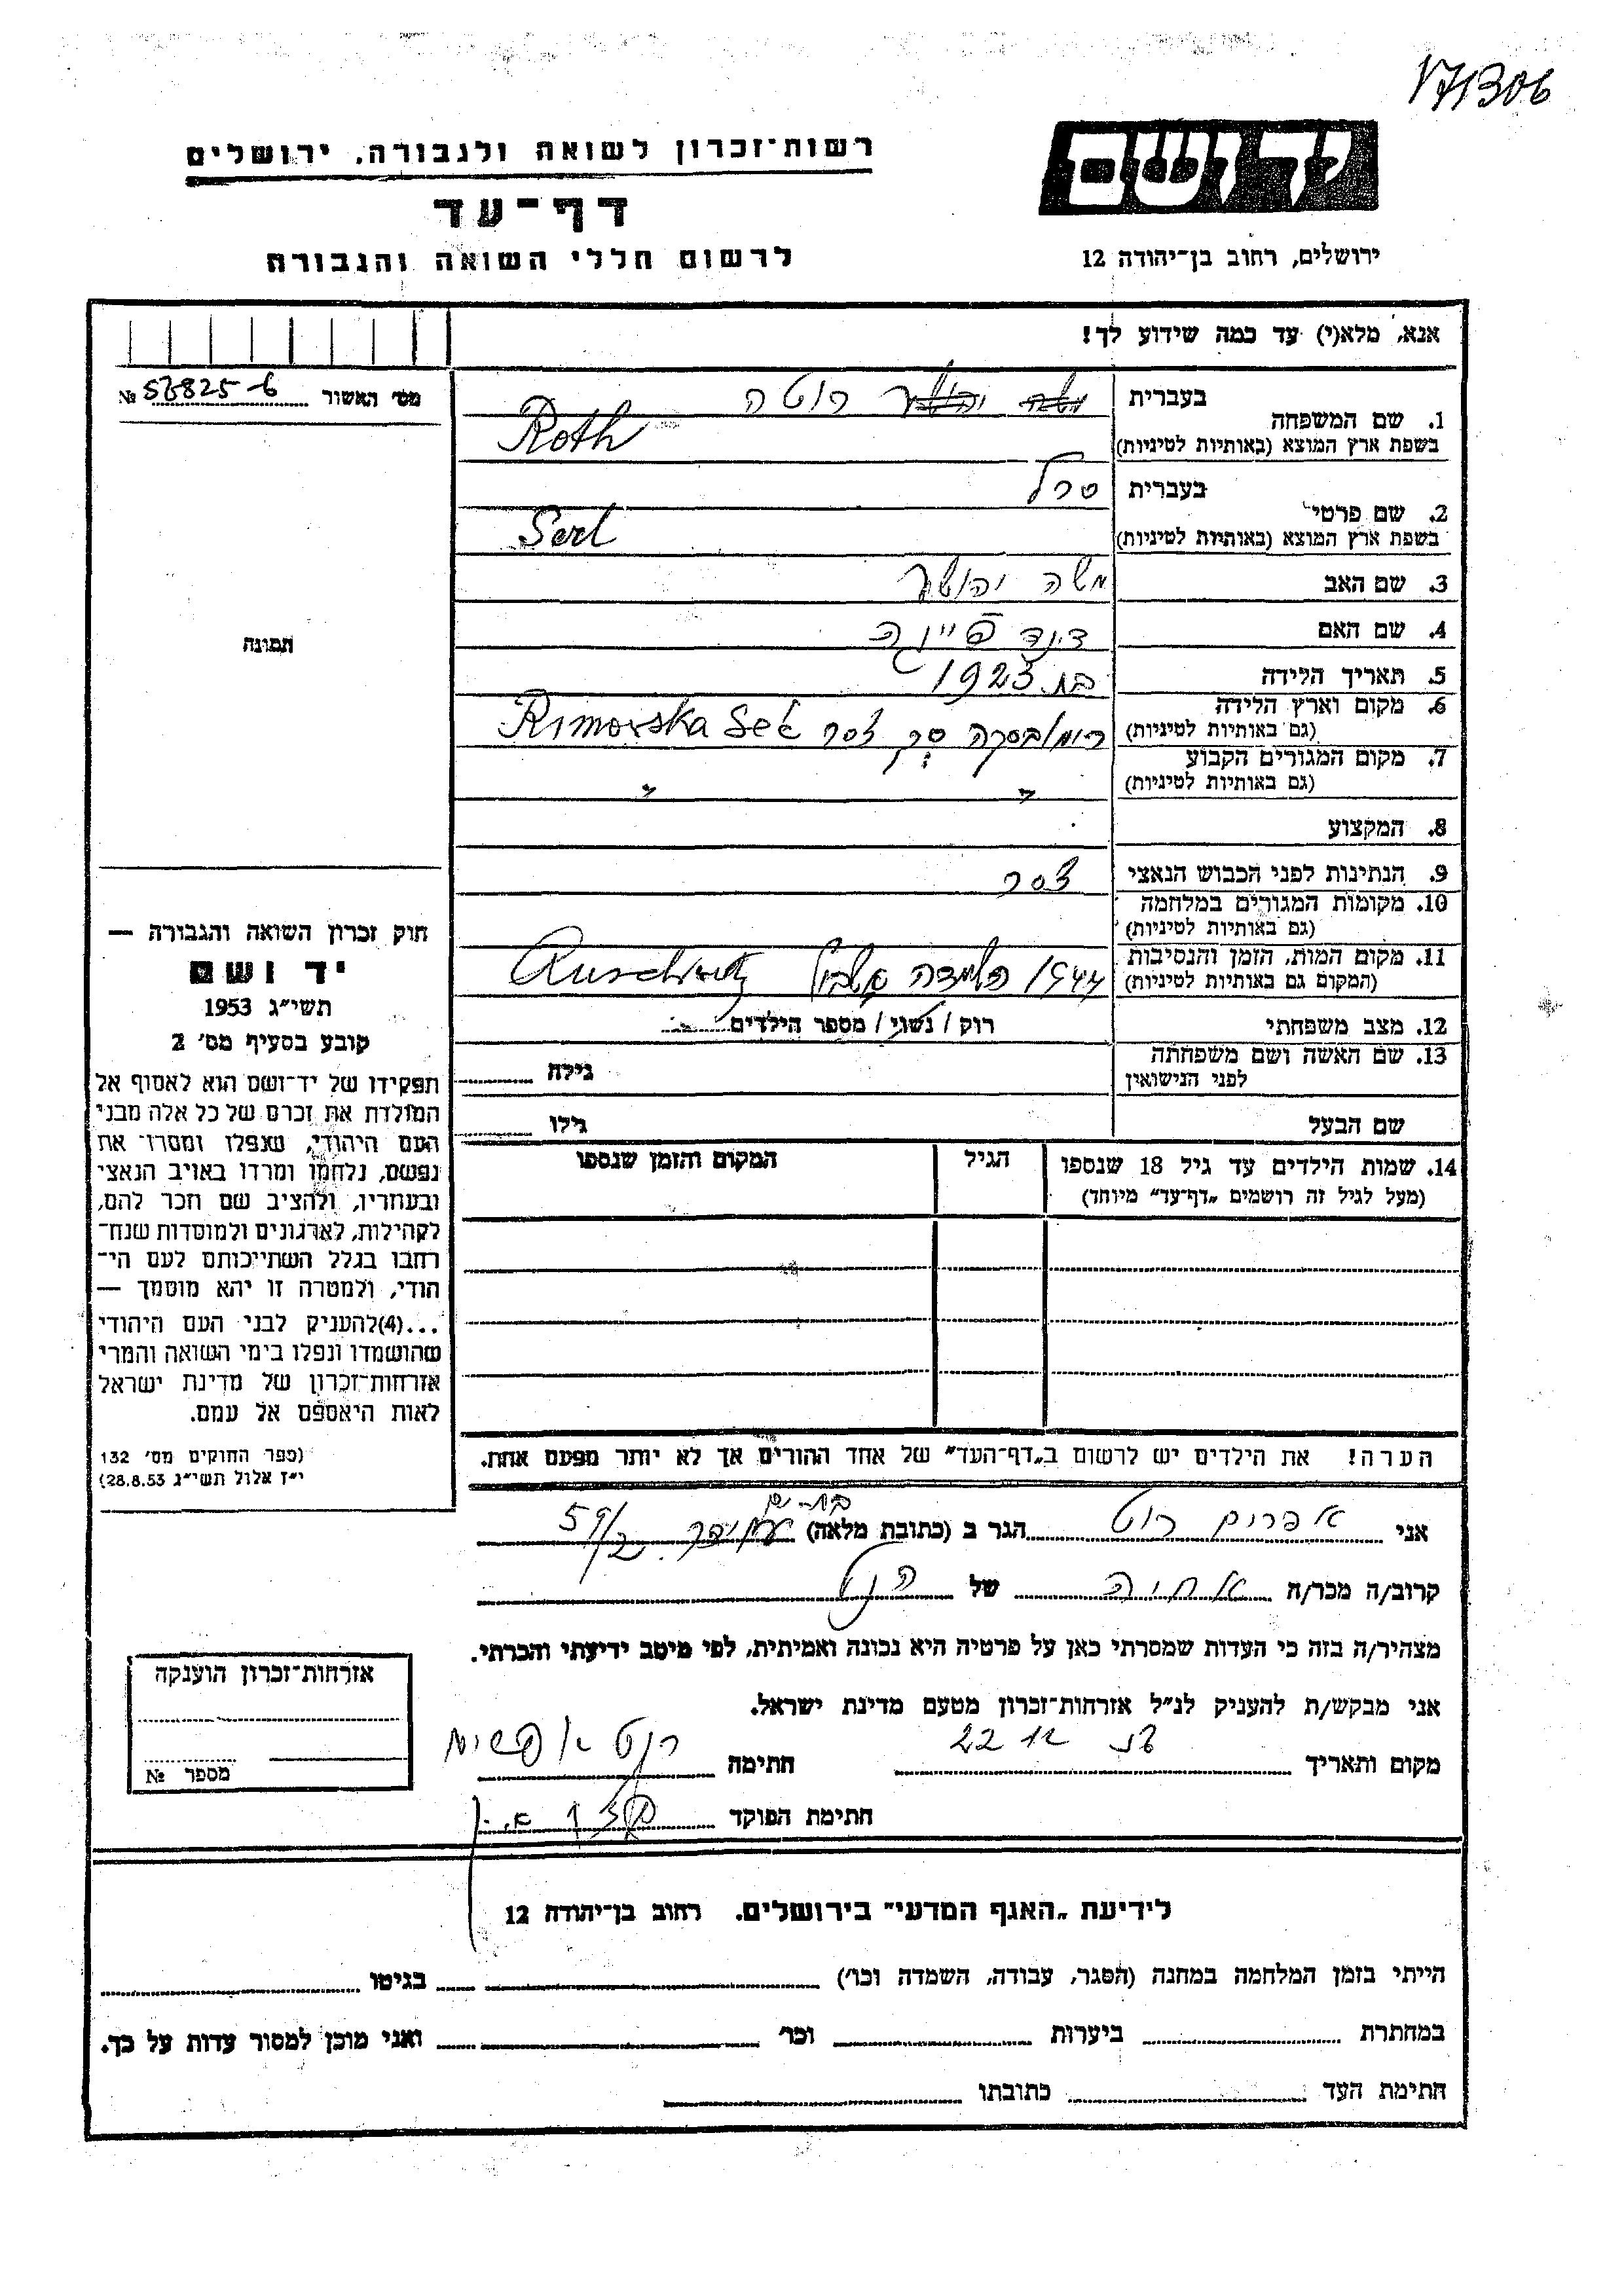 171306
יד ושם
רשות־זכרון לשואה ולגבורה, ירושלים
דף־עד
לרשום חללי השואה והגבורה
ירושלים, רחוב בן־יהודה 12
אנא, מלא(י) עד כמה שידוע לך!
מס׳ האשור № 56825-6
1. שם המשפחה בעברית משה יהושע רוטה
בשפת ארץ המוצא (באותיות לטיניות) Roth
2. שם פרטי בעברית סרל
בשפת ארץ המוצא (באותיות לטיניות) Serl
3. שם האב משה יהושע
4. שם האם
תמונה
5. תאריך הלידה בת 1923
6. מקום וארץ הלידה
(גם באותיות לטיניות) רימובסקה סץ׳ צ׳כר Rimovska Seč
7. מקום המגורים הקבוע
(גם באותיות לטיניות) " "
8. המקצוע
9. הנתינות לפני הכבוש הנאצי צ׳כר
10. מקומות המגורים במלחמה
(גם באותיות לטיניות)
11. מקום המות, הזמן והנסיבות
(המקום גם באותיות לטיניות) 1944 הושמדה Auschwitz
12. מצב משפחתי רוק / נשוי / מספר הילדים
13. שם האשה ושם משפחתה
לפני הנישואין גילה
שם הבעל גילו
14. שמות הילדים עד גיל 18 שנספו הגיל המקום והזמן שנספו
(מעל לגיל זה רושמים „דף־עד״ מיוחד)
הערה! את הילדים יש לרשום ב„דף־העד״ של אחד ההורים אך לא יותר מפעם אחת.
חוק זכרון השואה והגבורה —
יד ושם
תשי״ג 1953
קובע בסעיף מס׳ 2
תפקידו של יד־ושם הוא לאסוף אל
המולדת את זכרם של כל אלה מבני
העם היהודי, שנפלו ומסרו את
נפשם, נלחמו ומרדו באויב הנאצי
ובעוזריו, ולהציב שם וזכר להם,
לקהילות, לארגונים ולמוסדות שנח־
רבו בגלל השתייכותם לעם הי־
הודי, ולמטרה זו יהא מוסמך —
...(4)להעניק לבני העם היהודי
שהושמדו ונפלו בימי השואה והמרי
אזרחות־זכרון של מדינת ישראל
לאות היאספם אל עמם.
(ספר החוקים מס׳ 132
י״ז אלול תשי״ג 28.8.53)
אני אפרים רוט הגר ב (כתובת מלאה) בת־ים עמידר 59/2
קרוב/ה מכר/ה אחיה של הנ״ל
מצהיר/ה בזה כי העדות שמסרתי כאן על פרטיה היא נכונה ואמיתית, לפי מיטב ידיעתי והכרתי.
אני מבקש/ת להעניק לנ״ל אזרחות־זכרון מטעם מדינת ישראל.
מקום ותאריך 22 12 חתימה רוט אפרים
חתימת הפוקד
אזרחות־זכרון הוענקה
מספר №
לידיעת „האגף המדעי״ בירושלים. רחוב בן־יהודה 12
הייתי בזמן המלחמה במחנה (הסגר, עבודה, השמדה וכו׳) בגיטו
במחתרת ביערות וכו׳ ואני מוכן למסור עדות על כך.
חתימת העד כתובתו